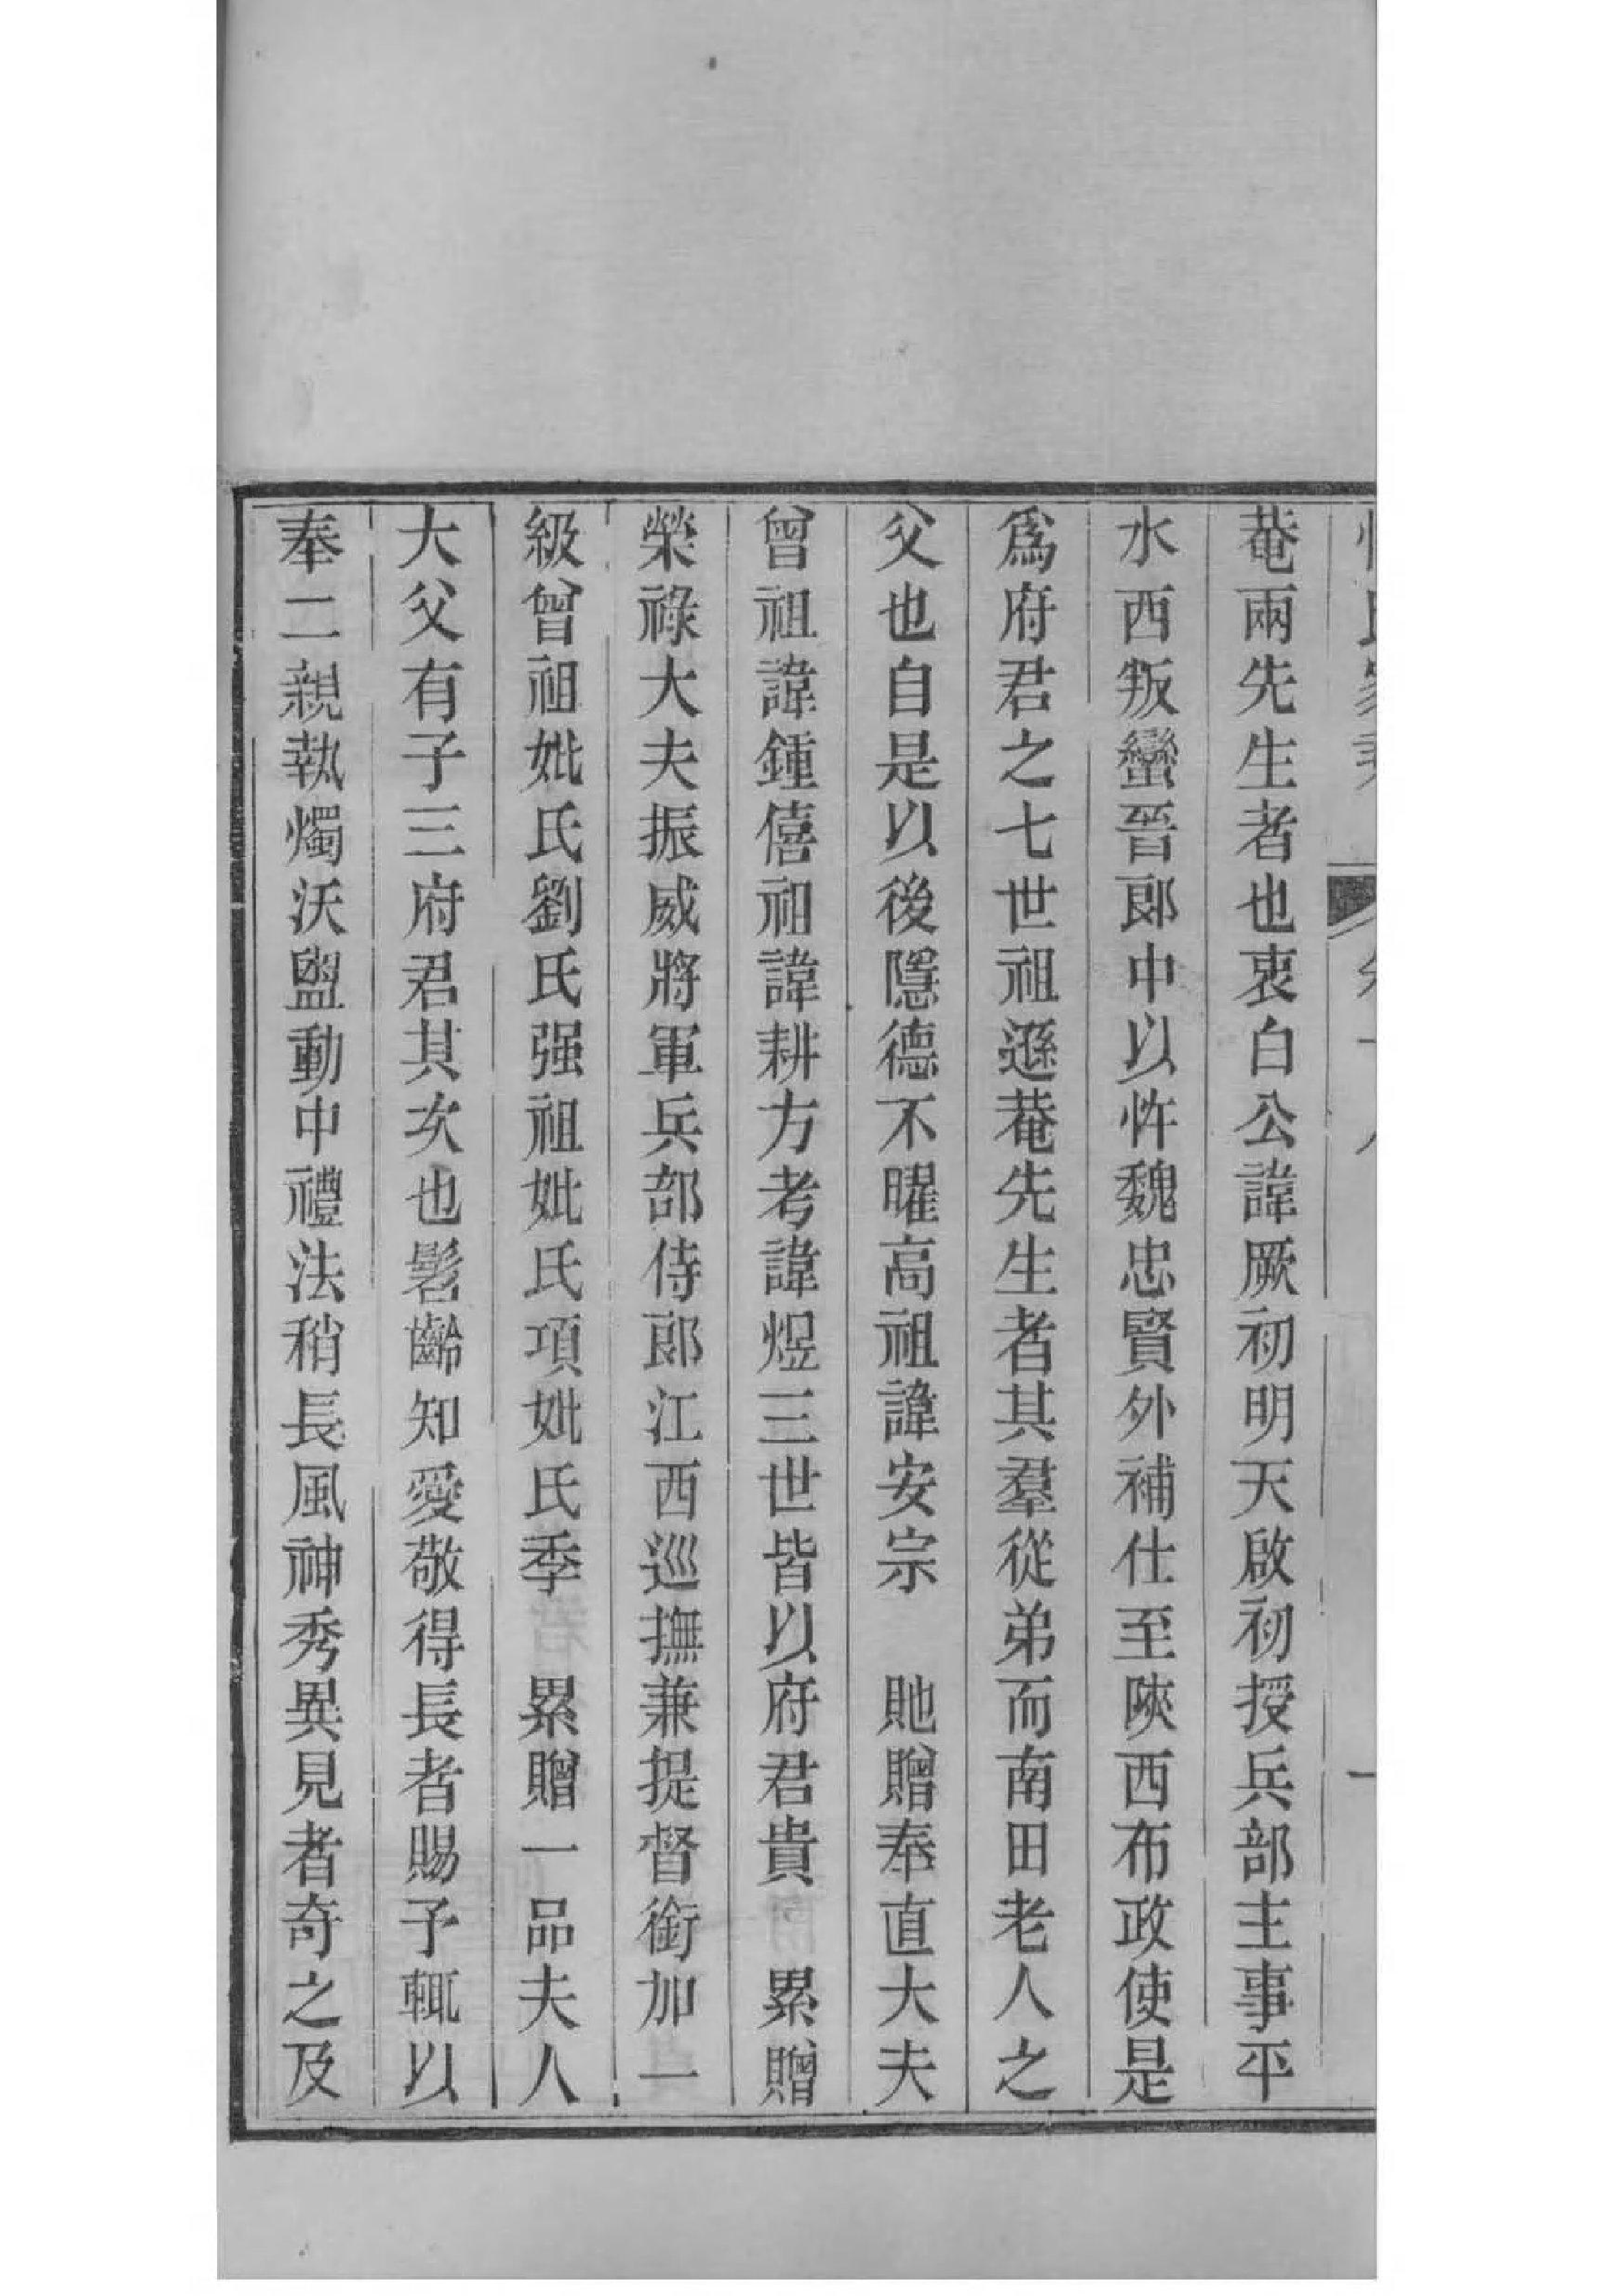 菴兩先生者也衷白公諱厥初明天啟初授兵部主事平
水西叛蠻晉郎中以忤魏忠賢外補仕至陝西布政使是
爲府君之七世祖遜菴先生者其羣從弟而南田老人之
父也自是以後隱德不曜高祖諱安宗　貤贈奉直大夫
曾祖諱鍾僖祖諱耕方考諱煜三世皆以府君貴　累贈
榮祿大夫振威將軍兵部侍郎江西巡撫兼提督銜加一
級曾祖妣氏劉氏强祖妣氏項妣氏季　累贈一品夫人
大父有子三府君其次也髫齡知愛敬得長者賜予輒以
奉二親執燭沃盥動中禮法稍長風神秀異見者奇之及